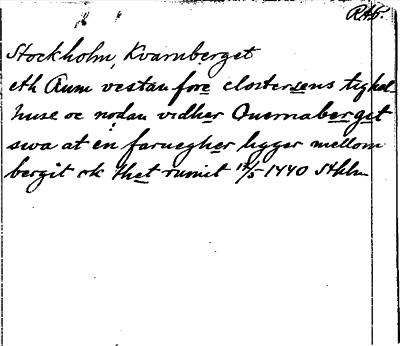 RAp.
Stockholm, Kvarnberget
eth Rum vestan fore clostersens tighel
huse oc nodan vidher Quernaberget
swa at en faruegher ligger mellom
bergit ok thet rumit 17/5 1440 Sthlm